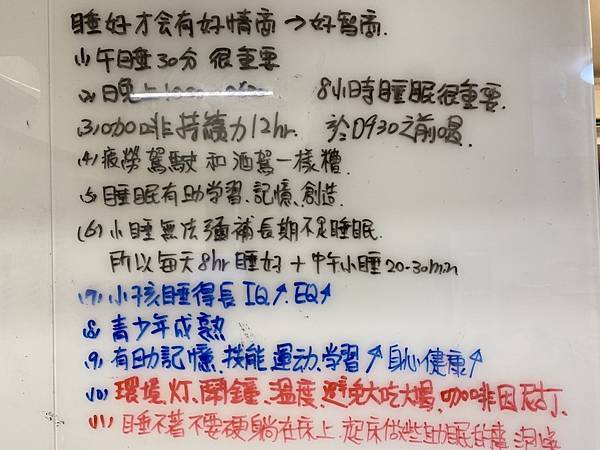 睡好才会有好情商→好智商.
(1) 午睡30分 很重要
(2) 日晚上 8小時睡眠很重要.
(3) 咖啡持續力12hr. 於0930之前喝.
(4) 疲勞駕駛和酒駕一樣糟.
(5) 睡眠有助学習、記憶、創造.
(6) 小睡無法彌補長期不足睡眠.
所以每天8hr睡好+中午小睡20-30min
(7) 小孩睡得長 IQ↑. EQ↑
(8) 青少年成熟
(9) 有助記憶、技能、運动、学習↑ 身心健康↑
(10) 環境、灯、鬧鐘、溫度、避免大吃大喝、咖啡因尼古丁、
(11) 睡不着不要硬躺在床上. 起床做些助眠的